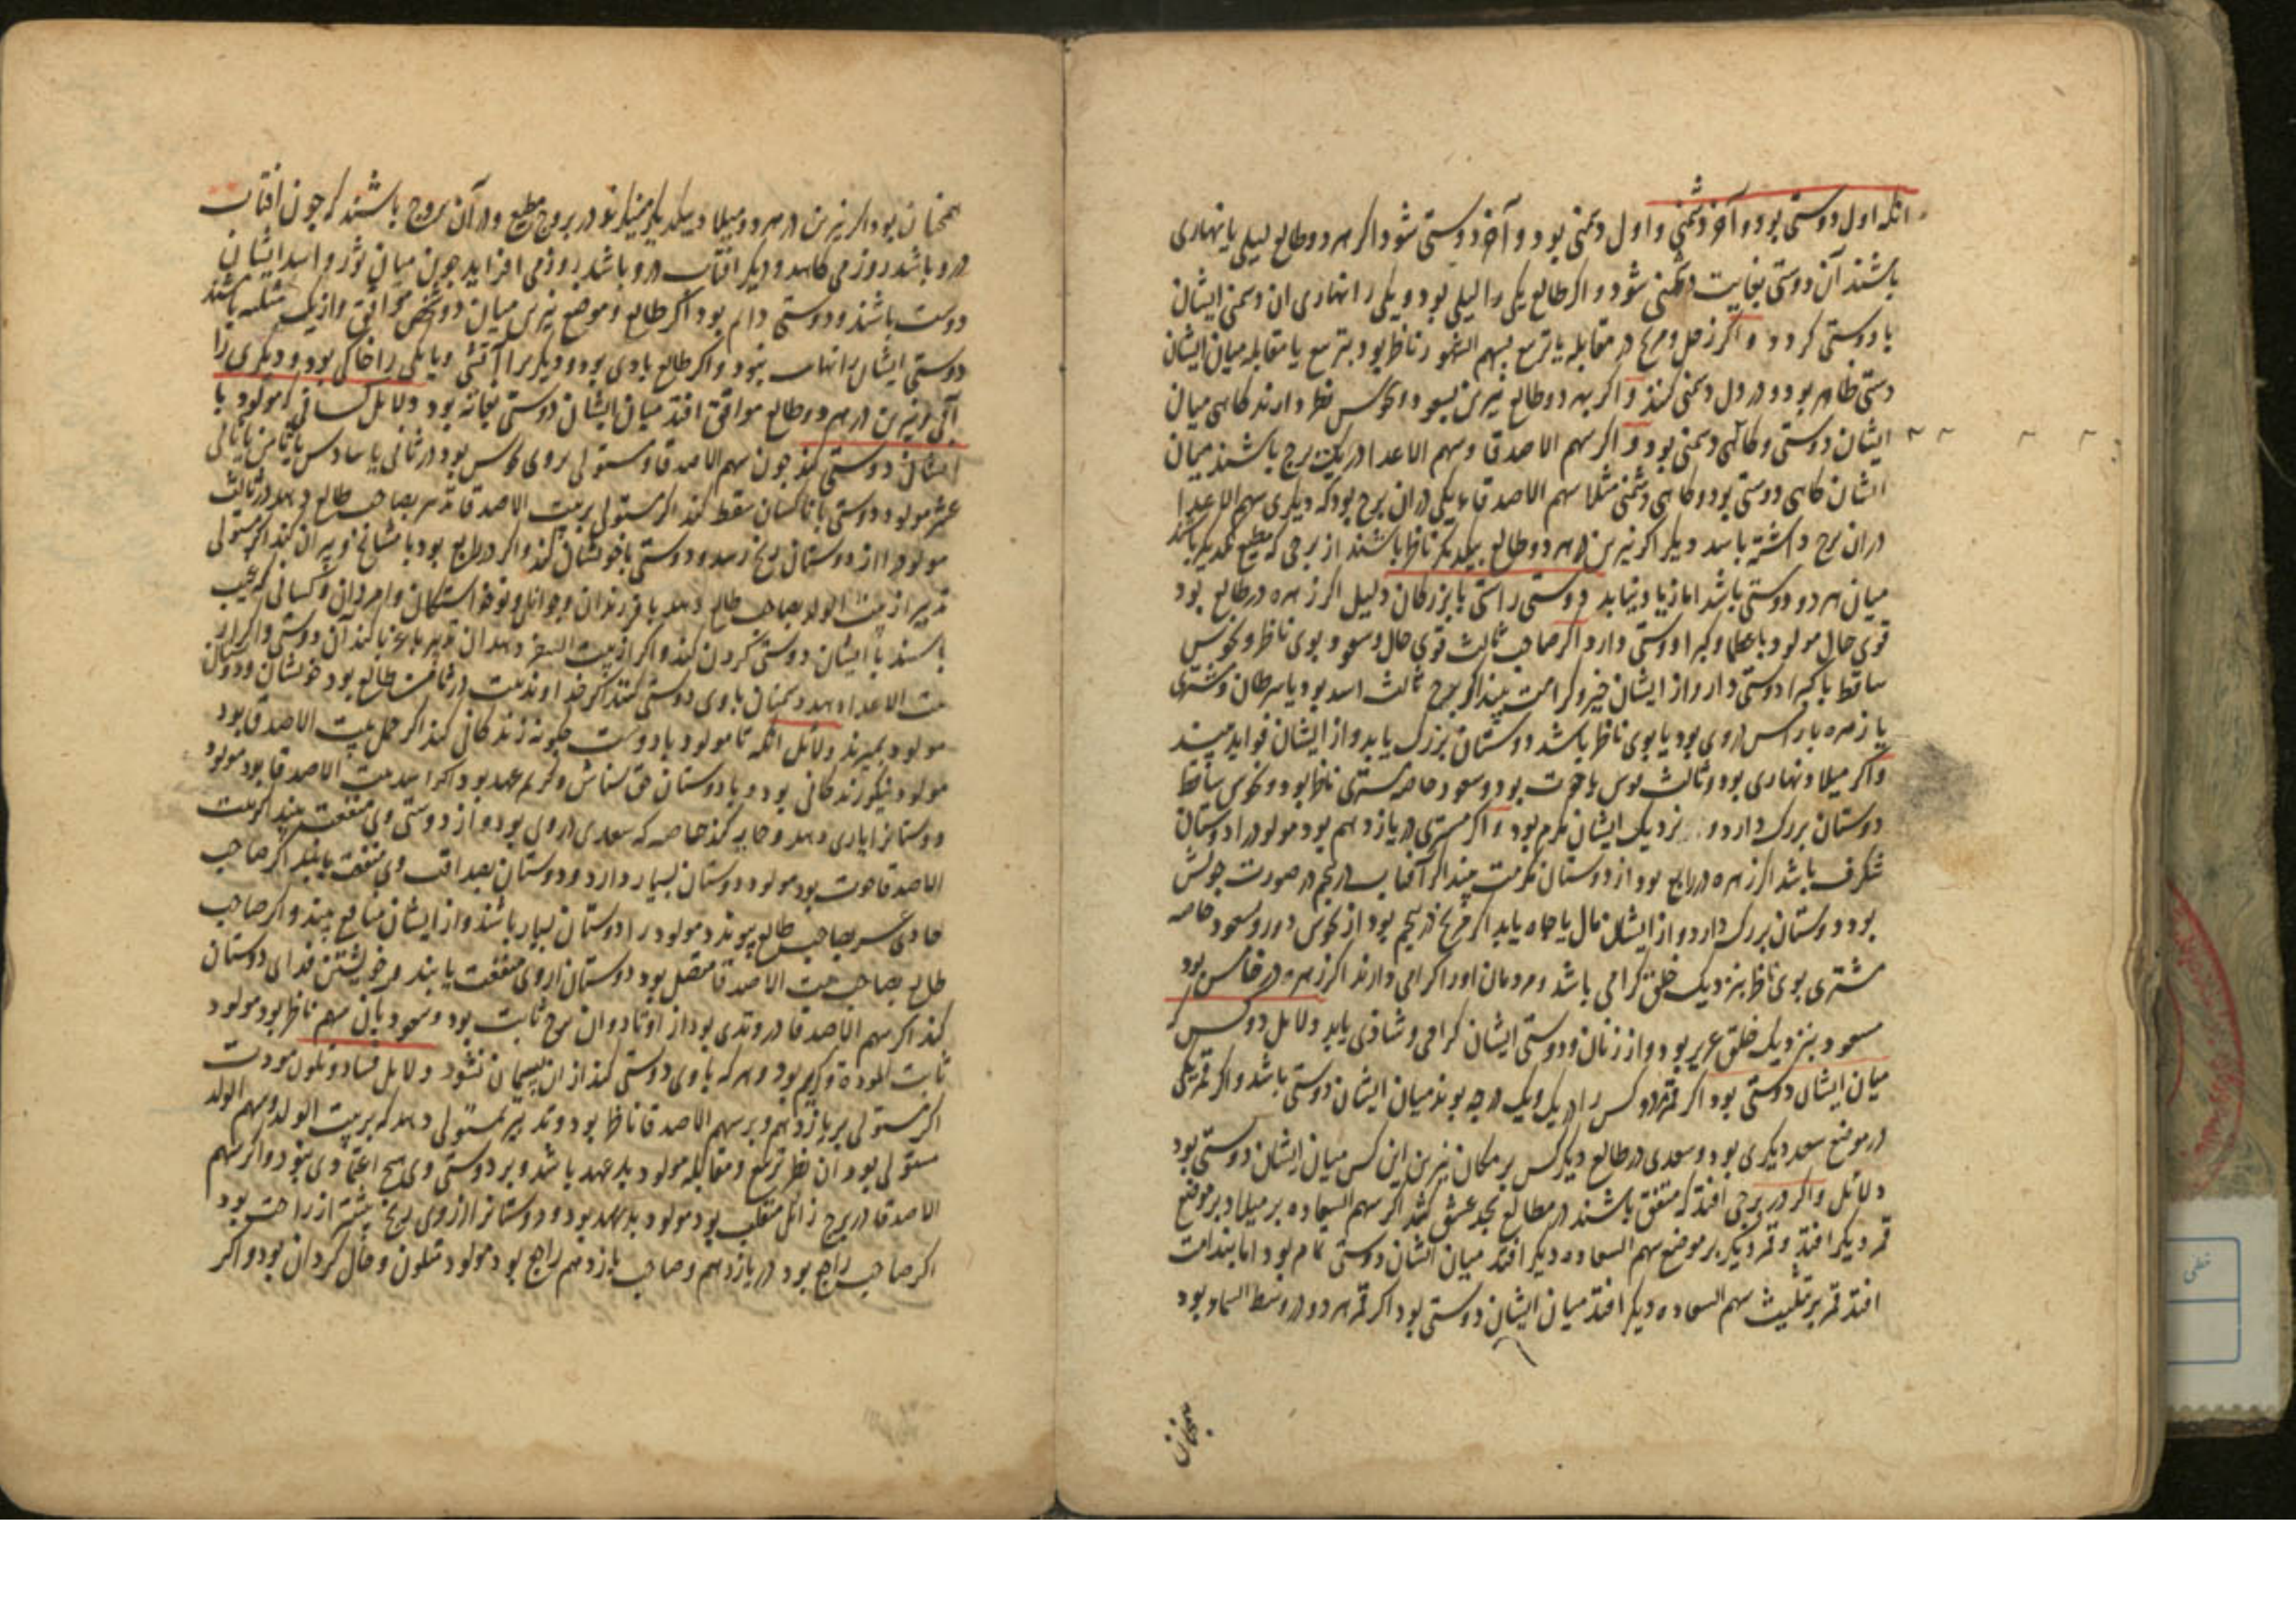 انکه اول دوستی بود و آخر دشمنی و اول دشمنی بود و آخر دوستی شود اکر هر دو طالع لیلی یا نهاری
باشند آن دوستی بغایت دشمنی شود و اکر طالع یکی را لیلی بود و یکی را نهاری ان دشمنی ایشان
با دوستی کردد و اکر زحل و مریخ در مقابله یا تربیع بسهم ناظر بود بتربیع یا مقابله میان ایشان
دوستی ظاهر بود و در دل دشمنی کنند و اکر بهر دو طالع نیرین بسعود و نحوس نظر دارند کاهی میان
ایشان دوستی و کاهی دشمنی بود و اکر سهم الاصدقا و سهم الاعدا در یک برج باشند میان
ایشان کاهی دوستی بود و کاهی دشمنی مثلا سهم الاصدقا یکی در ان برج بود که دیکری سهم الاعدا
در ان برج داشته باشد دیکر اکر نیرین در هر دو طالع بیکدیکر ناظر باشند از برجی که مطیع یکدیکر باشند
میان هر دو دوستی باشد اما دوستی راستی با بزرکان دلیل اکر زهره در طالع بود
قوی حال مولود با عظما و کبرا دوستی دارد اکر صاحب ثالث قوی حال و سعود بوی ناظر و نحوس
ساقط با کبرا دوستی دارد و از ایشان خیر و کرامت بیند اکر برج ثالث اسد بود یا سرطان و مشتری
یا زهره یا راس در وی بود یا بوی ناظر باشد دوستان بزرک یابد و از ایشان فواید بیند
و اکر میلاد نهاری بود و ثالث قوس یا حوت بود و سعود خاصه مشتری ناظر بود و نحوس ساقط
دوستان بزرک دارد و نزدیک ایشان مکرم بود و اکر مشتری در یازدهم بود مولود را دوستان
شکرف باشد اکر زهره در رابع بود از دوستان مکرمت بیند اکر آفتاب در پنجم در صورت خویش
بود دوستان بزرک دارد و از ایشان مال یا جاه یابد اکر مریخ در پنجم بود از نحوس دور و سعود خاصه
مشتری بوی ناظر بنزدیک خلق کرامی باشد و مردمان او را کرامی دارند اکر زهره در خامس بود
مسعود بنزدیک خلق عزیز بود و از زنان و دوستی ایشان کرامی و شادی یابد دلایل دو کس که
میان ایشان دوستی بود اکر قمر دو کس را در یک درجه بوند میان ایشان دوستی باشد و اکر قمر یکی
در موضع سعد دیکری بود و سعدی در طالع دیکر کس بر مکان نیرین این کس میان ایشان دوستی بود
دلایل و اکر در برجی افتد که متفق باشند در مطالع بحد عشق کشد اکر سهم السعاده بر میلاد بر موضع
قمر دیکر افتد و قمر دیکر بر موضع سهم السعاده دیکر افتد میان ایشان دوستی تمام بود اما
افتد قمر بر تثلیث سهم السعاده دیکر افتد میان ایشان دوستی بود اکر قمر هر دو در وسط السما بود
همچنان
همچنان بود اکر نیرین در هر دو میلاد بیکدیکر در بروج مطیع و در آن بروج باشند که چون افتاب
در و باشد روز می کاهد و دیکر افتاب در و باشد روز می افزاید چون میان ثور و اسد ایشان
دوست باشند و دوستی دایم بود اکر طالع و موضع نیرین میان دو شخص موافق و از یک مثلثه باشند
دوستی ایشان را نهایت نبود و اکر طالع بادی بود و دیکر را آتشی و یا یکی را خاکی بود و دیکری را
آبی و نیرین در هر دو طالع موافق افتد میان ایشان دوستی بود دلایل کسانی که مولود با
ایشان دوستی کند چون سهم الاصدقا و مستولی بر وی نحوس بود در ثانی یا سادس یا ثامن یا ثانی
عشر مولود دوستی با ناکسان سقط کند اکر مستولی بر بیت الاصدقا تدبیر بصاحب طالع دهد در ثالث
مولود را از دوستان رنج رسد و دوستی با خویشان کند و اکر در رابع بود با مشایخ و پیران کند اکر مستولی
تدبیر از بیت الولد بصاحب طالع دهد با فرزندان و جوانان و نوخواستکان و امردان و کسانی که غریب
باشند با ایشان دوستی کردن کند و اکر از بیت السفر دهد ان تدبیر با غربا کند آن دوستی و اکر از
بیت الاعدا دهد دشمنان با وی دوستی کنند اکر خداوند بیت در ثامن طالع بود خویشان و دوستان
مولود بمیرند دلائل انکه تا مولود با دوست چکونه زندکانی کند اکر حمل بیت الاصدقا بود
مولود نیکو زندکانی بود و با دوستان حق شناس و کریم عهد بود اکر اسد بیت الاصدقا بود مولود
دوستانرا یاری دهد و حمایه کند خاصه که سعدی در وی بود و از دوستی وی منفعت بیند اکر بیت
الاصدقا حوت بود مولود دوستان بسیار دارد و دوستان بصداقت وی منفعت یابند اکر صاحب
حادی عشر بصاحب طالع پیوندد مولود را دوستان بسیار باشند و از ایشان منافع بیند و اکر صاحب
طالع بصاحب بیت الاصدقا متصل بود دوستان از وی منفعت یابند و خویشتن فدای دوستان
کند اکر سهم الاصدقا در وتدی بود از اوتاد و ان برج ثابت بود و سعود بان سهم ناظر بود مولود
ثابت الموده و کریم بود و هر که با وی دوستی کند از ان پشیمان نشود دلایل فساد و تلون مودت
اکر مستولی بر یازدهم و بر سهم الاصدقا ناظر بود و تدبیر بمستولی دهد که بر بیت الولد و سهم الولد
مستولی بود ان نظر تربیع و مقابله مولود بد عهد باشد و بر دوستی وی هیچ اعتمادی نبود و اکر سهم
الاصدقا در برج زائل منقلب بود مولود بد عهد بود و دوستانرا از وی رنج بیشتر از راحت بود
اکر صاحب راجع بود در یازدهم و صاحب یازدهم راجع بود مولود متلون و حال کردان بود و اکر